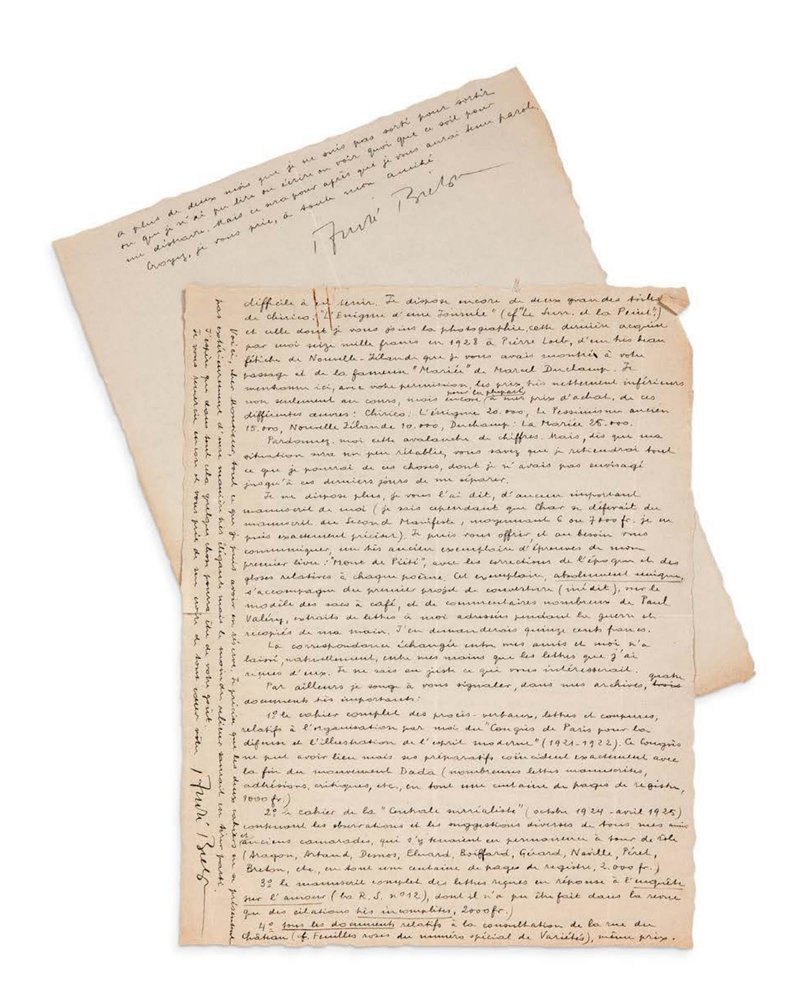 a plus de deux mois que je ne suis pas sorti pour sortir
ou que je n'ai pu lire ou écrire ou voir quoi que ce soit pour
me distraire. Mais ce sera pour après que je vous aurai tenu parole.
Croyez, je vous prie, à toute mon amitié
André Breton
difficile à en tenir. Je dispose encore de deux grandes toiles
de Chirico: "L'Enigme d'une Journée" (cf "Le Surr. et la Peint.")
et celle dont je vous joins la photographie, cette dernière acquise
par moi seize mille francs en 1928 à Pierre Loeb, d'un très beau
fétiche de Nouvelle-Zélande que je vous avais montré à votre
passage et de la fameuse "Mariée" de Marcel Duchamp. Je
mentionne ici, avec votre permission, les prix, très nettement inférieurs
non seulement au cours, mais encore pour la plupart à mes prix d'achat, de ces
différentes œuvres: Chirico: L'énigme 20.000, le Pessimisme ancien
15.000, Nouvelle Zélande 10.000, Duchamp: La Mariée 25.000.
Pardonnez-moi cette avalanche de chiffres. Mais, dès que ma
situation sera un peu rétablie, vous savez que je retiendrai tout
ce que je pourrai de ces choses, dont je n'avais pas envisagé
jusqu'à ces derniers jours de me séparer.
Je ne dispose plus, je vous l'ai dit, d'aucun important
manuscrit de moi (je sais cependant que Char se déferait du
manuscrit du Second Manifeste, moyennant 6 ou 7000 fr. je ne
puis exactement préciser). Je puis vous offrir, et au besoin vous
communiquer, un très ancien exemplaire d'épreuves de mon
premier livre: "Mont de Piété", avec les corrections de l'époque et des
gloses relatives à chaque poème. Cet exemplaire, absolument unique,
s'accompagne du premier projet de couverture (inédit), sur le
modèle des sacs à café, et de commentaires nombreux de Paul
Valéry, extraits de lettres à moi adressées pendant la guerre et
recopiés de ma main. J'en demanderais quinze cents francs.
La correspondance échangée entre mes amis et moi n'a
laissé, naturellement, entre mes mains que les lettres que j'ai
reçues d'eux. Je ne sais au juste ce qui vous intéresserait.
Par ailleurs je songe à vous signaler, dans mes archives, trois quatre
documents très importants:
1º le cahier complet des procès-verbaux, lettres et coupures,
relatifs à l'organisation par moi du "Congrès de Paris pour la
défense et l'illustration de l'esprit moderne" (1921-1922). Ce Congrès
ne put avoir lieu mais ses préparatifs coïncident exactement avec
la fin du mouvement Dada (nombreuses lettres manuscrites,
adhésions, critiques, etc., en tout une centaine de pages de registre,
1000 fr.)
2º le cahier de la "Centrale surréaliste" (octobre 1924 - avril 1925)
contenant les observations et les suggestions diverses de tous mes amis
et anciens camarades, qui s'y tenaient en permanence à tour de rôle
(Aragon, Artaud, Desnos, Eluard, Boiffard, Gérard, Naville, Péret,
Breton, etc., en tout une centaine de pages de registre, 2.000 fr.)
3º le manuscrit complet des lettres reçues en réponse à l'enquête
sur l'amour (La R. S. nº12), dont il n'a pu être fait dans la revue
que des citations très incomplètes, 2000 fr.)
4º tous les documents relatifs à la consultation de la rue du
Château (cf. Feuilles roses du numéro spécial de Variétés), même prix.
Voici, cher Monsieur, tout ce que je puis avoir en réserve. Je précise que les deux cahiers en se présentent
pas extérieurement d'une manière très élégante, mais le moindre relieur saurait en tirer parti.
J'espère que dans tout cela quelque chose pourra être de votre goût.
Je vous remercie encore et vous prie de me croire de tout cœur vôtre.
André Breton